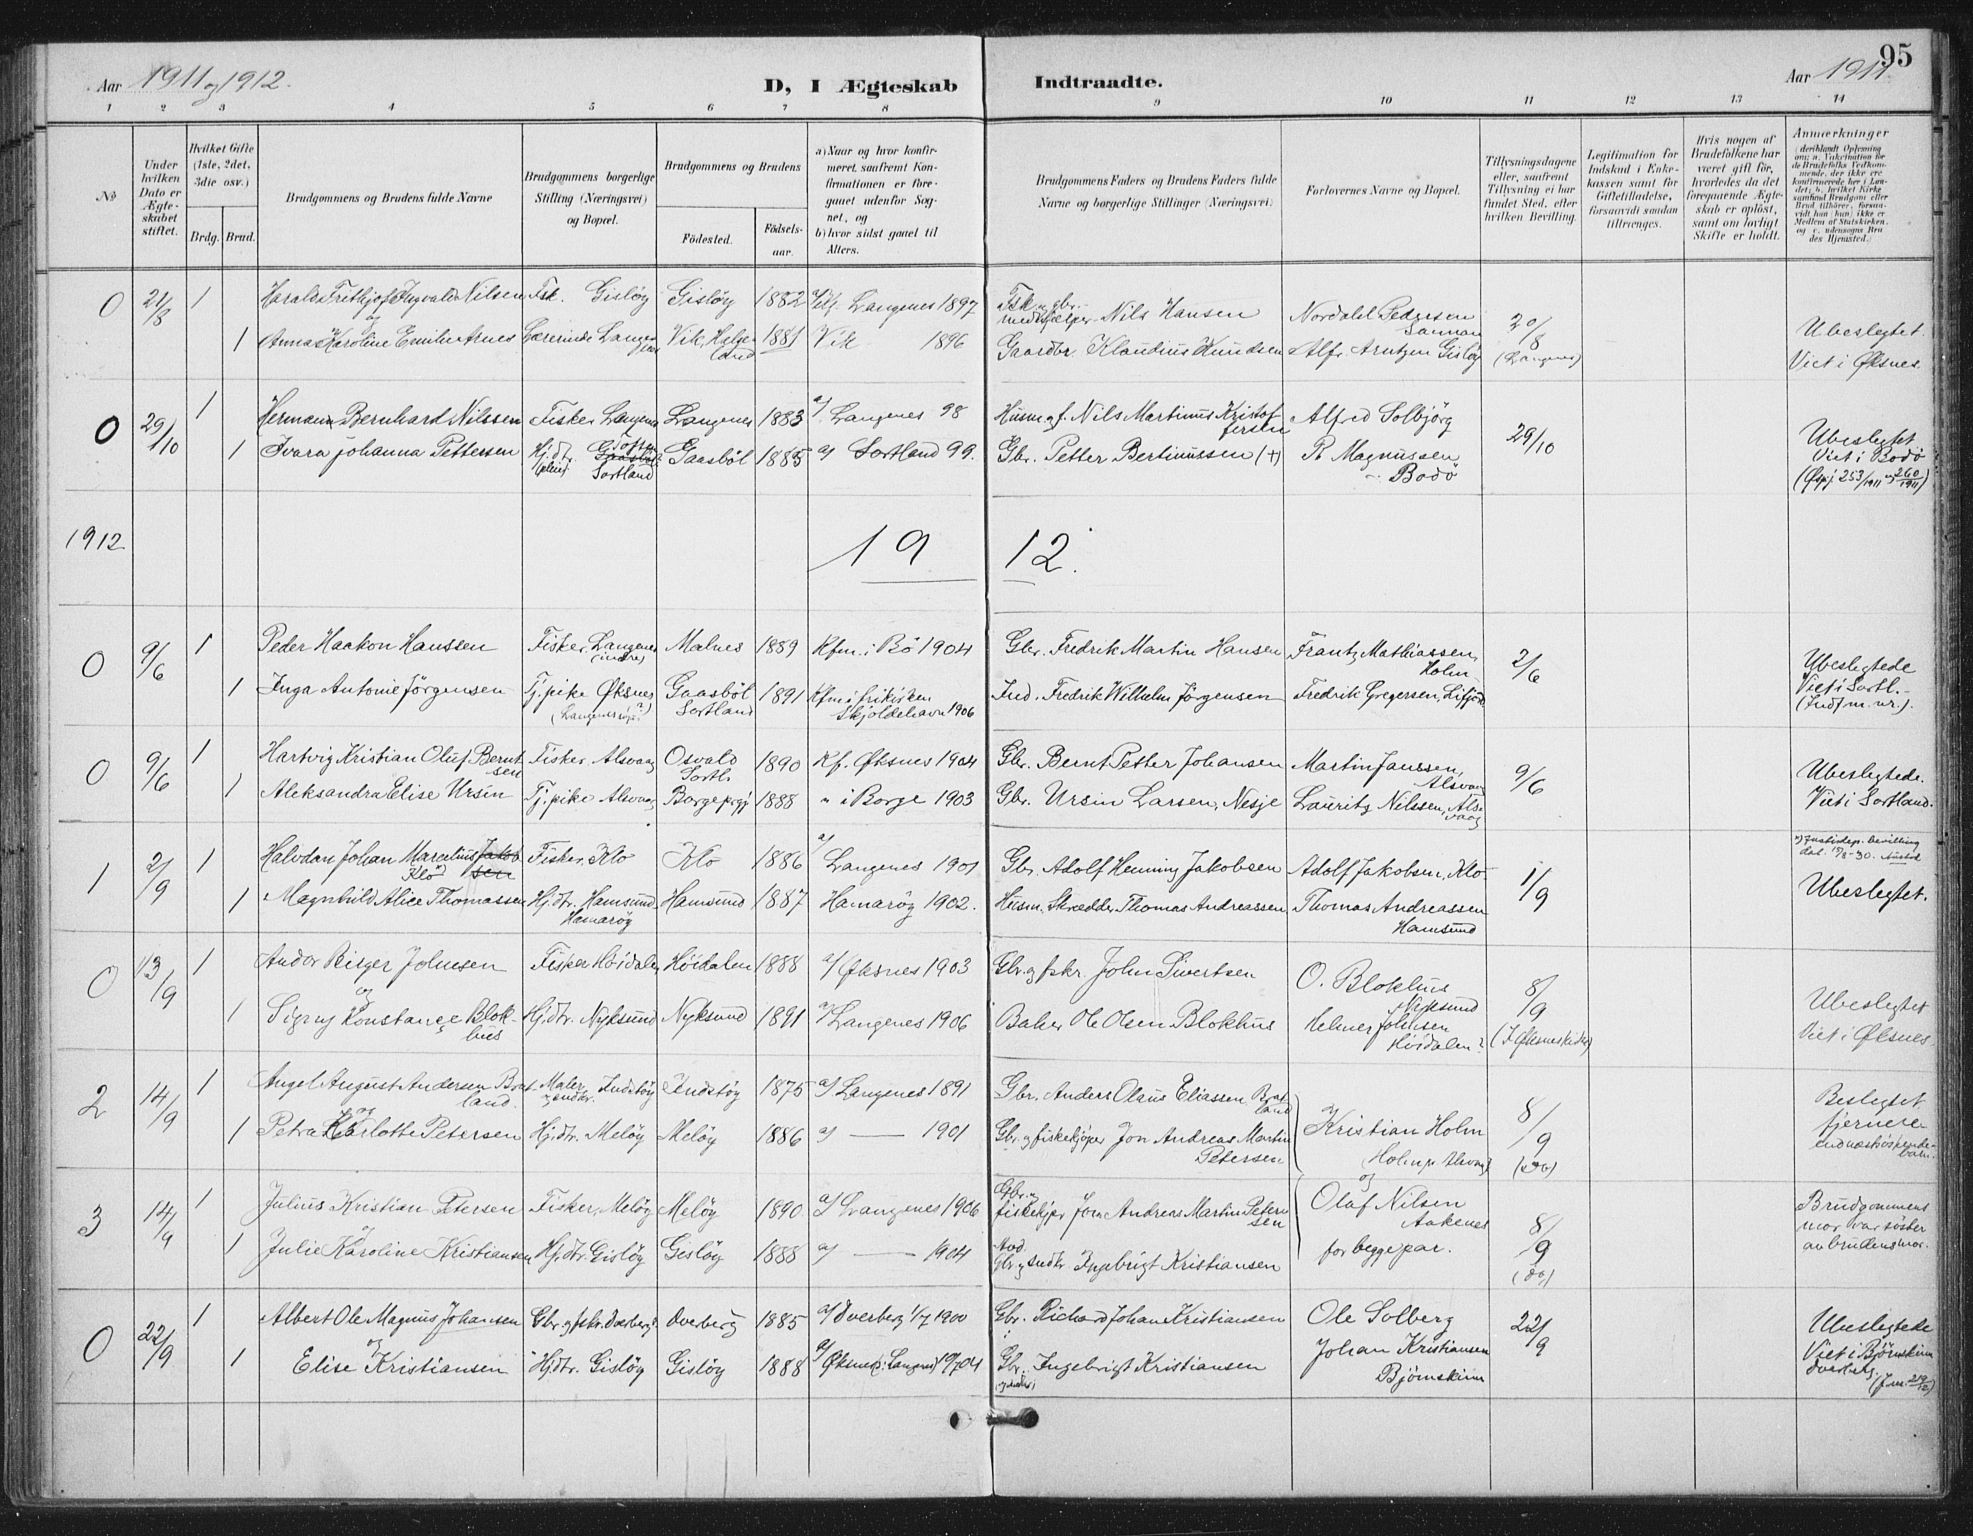 95
Aar 1911 og 1912.
D, I Ægteskab Indtraadte.
Aar 1911.
1 2 3 4 5 6 7 8 9 10 11 12 13 14
No
Under hvilken Dato er Ægteskabet stiftet.
Hvilket Gifte (1ste, 2det, 3die osv.)
Brdg. Brud.
Brudgommens og Brudens fulde Navne
Brudgommens borgerlige Stilling (Næringsvei) og Bopæl.
Brudgommens og Brudens
Födested.
Födselsaar.
a) Naar og hvor konfirmeret, saafremt Konfirmationen er foregaaet udenfor Sognet, og
b) hvor sidst gaaet til Alters.
Brudgommens Faders og Brudens Faders fulde Navne og borgerlige Stillinger (Næringsvei)
Forlovernes Navne og Bopæl.
Tillysningsdagene eller, saafremt Tillysning ei har fundet Sted, efter hvilken Bevilling.
Legitimation for Indskud i Enkekassen samt for Giftetilladelse, forsaavidt saadan tiltrænges.
Hvis nogen af Brudefolkene har været gift för, hvorledes da det foregaaende Ægteskab er oplöst, samt om lovligt Skifte er holdt.
Anmærkninger
0 21/8 1 Harald Frithjof Ingvald Nilsen Fsk. Gislöy Gislöy 1882 Langenes 1897 Nils Hansen Nordahl Pedersen 20/8
og
1 Anna Karoline Emilie Arnes Lærerinde Langenes Vik, Helgeland 1881 Vik 1896 Gaardbr. Klaudius Knudsen Alfr. Arntzen Gislöy (Langenes) Ubeslegtet. Viet i Øksnes.
0 29/10 1 Hermann Bernhard Nilssen Fisker Langenes Langenes 1883 a/ Langenes 98 Husm. og f. Nils Martinus Kristoffersen Alfred Solbjörg 29/10
1 Ivara Johanna Pettersen Hj.dtr. Sortland Gaasböl 1885 a/ Sortland 99. Gbr. Petter Bertinussen (+) R Magnussen Bodö Ubeslegtet. Viet i Bodö
1912 19 12.
0 9/6 1 Peder Haakon Hanssen Fisker, Langenes (indre) Malnes 1889 Kfm. i Bö 1904 Gbr. Fredrik Martin Hansen Frantz Mathiassen, Holm 2/6
1 Inga Antonie Jörgensen Tj.pike Øksnes Gaasböl Sortland 1891 Kfm. i frikirken Skjoldehavn 1906 Ind. Fredrik Wilhelm Jörgensen Fredrik Gregersen, Lifjord Ubeslegtede Viet i Sortl.
0 9/6 1 Hartvig Kristian Oluf Berntsen Fisker. Alsvaag Osvald Sortl. 1890 Kf. Øksnes 1904 Gbr. Bernt Petter Johansen Martin Janssen, Alsvaag 9/6
1 Aleksandra Elise Ursin Tj.pike Alsvaag Borge prgj 1888 " i Borge 1903 Gbr. Ursin Larsen, Nesje Laurits Nilssen, Alsvaag Ubeslegtede. Viet i Sortland.
1 2/9 1 Halvdan Johan Marcelius Jakobsen Klo Fisker, Klo Klo 1886 a/ Langenes 1901 Gbr. Adolf Henning Jakobsen Adolf Jakobsen, Klo 1/9
1 Magnhild Alice Thomassen Hj.dtr. Hamsund Hamaröy Hamsund 1887 Hamaröy 1902. Husm. Skrædder Thomas Andreassen Thomas Andreassen Hamsund Ubeslegtet.
0 13/9 1 Andor Birger Johnsen Fisker Höidalen Höidalen 1888 a/ Øksnes 1903 Gbr. og fskr. John Sivertsen O. Blokhus Nyksund 8/9
og
1 Signy Konstance Blokhus Hj.dtr. Nyksund Nyksund 1891 a/ Langenes 1906 Baker Ole Olsen Blokhus Helmer Johnsen Höidalen? Ubeslegtet Viet i Øksnes
2 14/9 1 Angel August Andersen Bratland. Maler 1875 a/ Langenes 1891 Gbr. Anders Olaus Eliassen Bratland 8/9
og
1 Petra Karlotte Petersen Hj.dtr. Melöy Melöy 1886 a/ — 1901 Gbr. og fiskekjöper Jon Andreas Martin Petersen Kristian Holm (do) Beslegtet fjernere
og
3 14/9 1 Julius Kristian Petersen Fisker, Melöy Melöy 1890 a/ Langenes 1906 Gbr. og fiskekjöper Jon Andreas Martin Petersen Olaf Nilsen Aakenes 8/9
og
1 Julie Karoline Kristiansen Hj.dtr. Gislöy Gislöy 1888 a/ — 1904 Ingebrigt Kristiansen for begge par. (do) Brudgommens mor var söster av brudens mor.
0 22/9 1 Albert Ole Magnus Johansen Gbr. og fskr. Dverberg Dverberg 1885 a/ Dverberg 1/7 1900 Gbr. Richard Johan Kristiansen Ole Solberg 22/9
og
1 Elise Kristiansen Hj.dtr. Gislöy Gislöy 1888 Gbr. Ingebrigt Kristiansen Johan Kristiansen Björnskinn Ubeslegtede Viet i Björnskinn Dverberg.